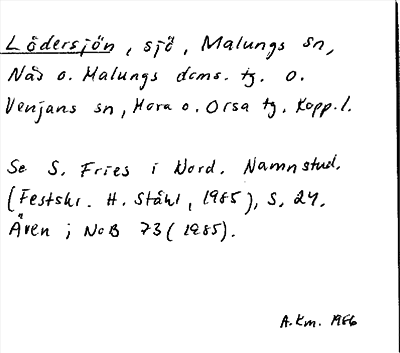 Lödersjön, sjö, Malungs sn,
Nås o. Malungs doms. tg. o.
Venjans sn, Mora o. Orsa tg. Kopp. l.
Se S. Fries i Nord. Namnstud.
(Festskr. H. Ståhl, 1985), s. 24.
Även i NoB 73 (1985).
A.Km. 1986